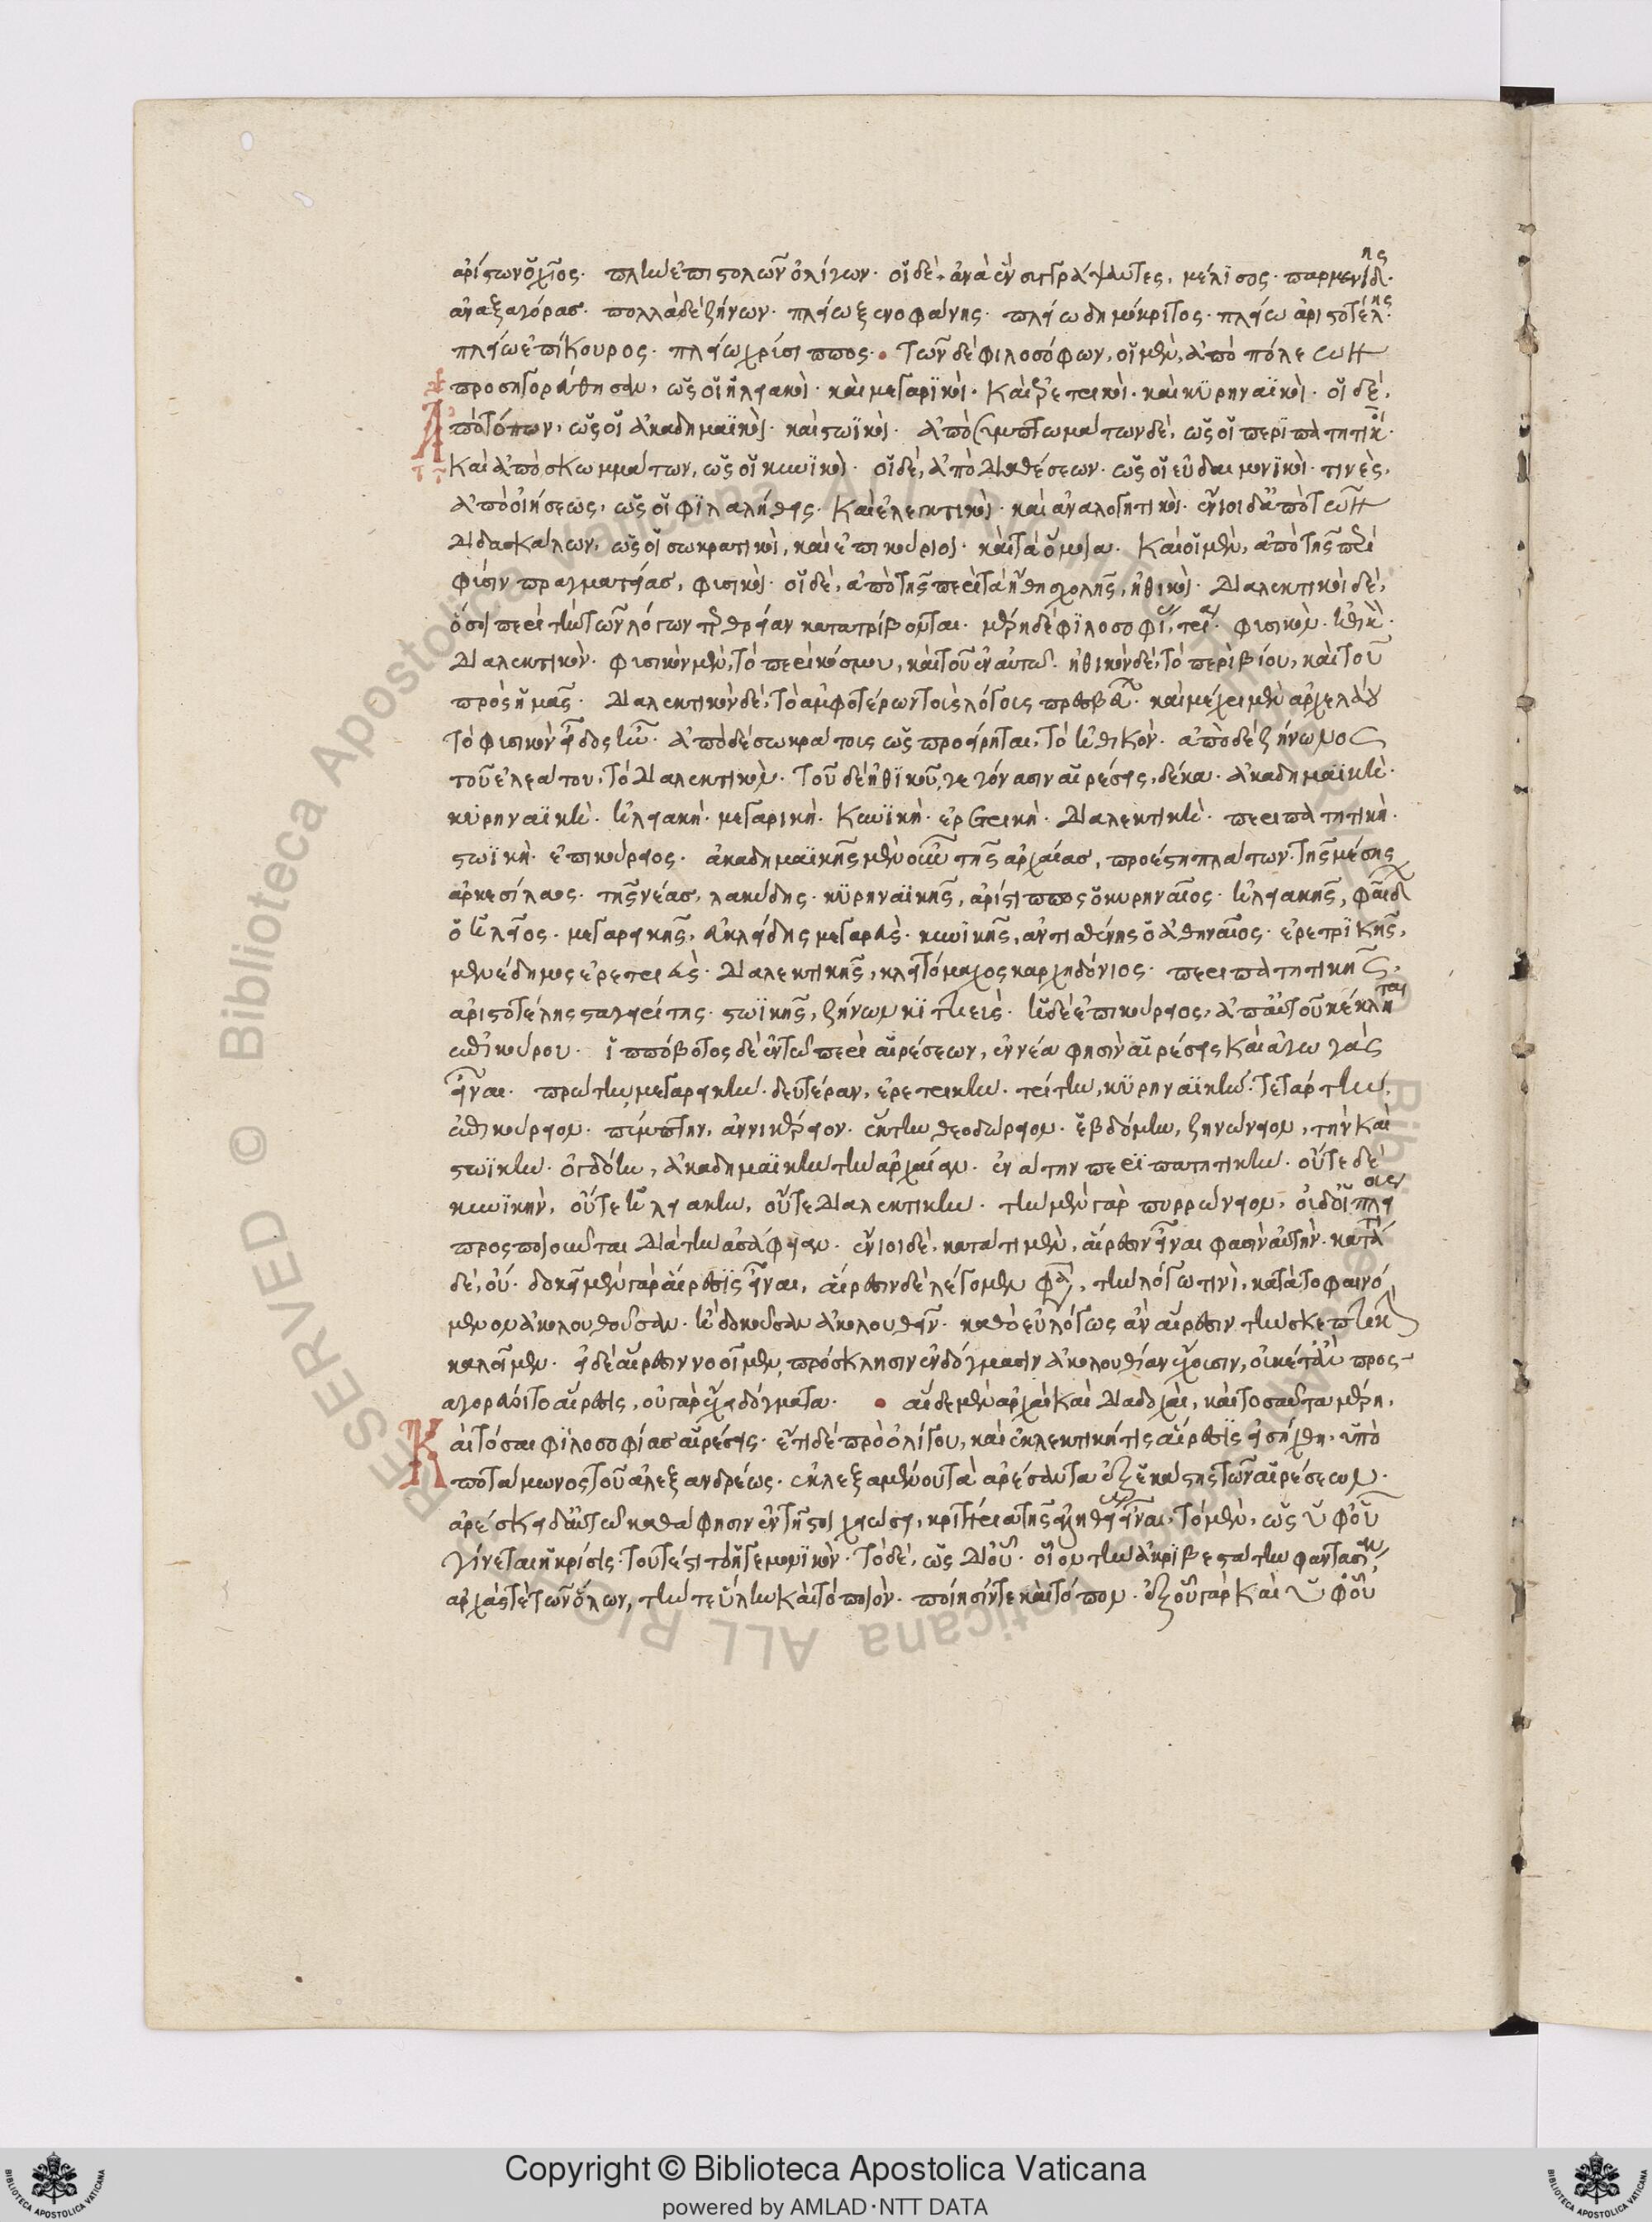 ἀρίστων ὁ χῖος· πλὴν ἐπιστολῶν ὀλίγων· οἱ δὲ, ἀνὰ ἓν συγγράψαντες, μέλισος· παρμενίδης·
ἀναξαγόρας· πολλὰ δὲ ζήνων· πλείω ξενοφάνης· πλείω δημόκριτος· πλείω ἀριστοτέλης·
πλείω ἐπίκουρος· πλείω χρύσιππος· τῶν δὲ φιλοσόφων, οἱ μὲν, ἀπὸ πόλεων
προσηγορεύθησαν, ὡς οἱ ἠλειακοὶ· καὶ μεγαρικοὶ· καὶ ἐρετρικοὶ· καὶ κυρηναϊκοὶ· οἱ δὲ,
ἀπὸ τόπων, ὡς οἱ ἀκαδημαϊκοὶ· καὶ στωϊκοὶ· ἀπὸ συμπτωμάτων δὲ, ὡς οἱ περιπατητικοὶ·
καὶ ἀπὸ σκωμμάτων, ὡς οἱ κυνικοὶ· οἱ δὲ, ἀπὸ διαθέσεων· ὡς οἱ εὐδαιμονικοὶ· τινὲς,
ἀπὸ οἰήσεως, ὡς οἱ φιλαλήθεις· καὶ ἐλεγκτικοὶ· καὶ ἀναλογητικοὶ· ἔνιοι δ' ἀπὸ τῶν
διδασκάλων, ὡς οἱ σωκρατικοὶ, καὶ ἐπικούριοι· καὶ τὰ ὅμοια· καὶ οἱ μὲν, ἀπὸ τῆς περὶ
φύσιν πραγματείας, φυσικοὶ· οἱ δὲ, ἀπὸ τῆς περὶ τὰ ἤθη σχολῆς, ἠθικοὶ· διαλεκτικοὶ δὲ,
ὅσοι περὶ τὴν τῶν λόγων τερθρείαν κατατρίβονται· μέρη δὲ φιλοσοφίας, τρία· φυσικὸν· ἠθικὸν·
διαλεκτικόν· φυσικὸν μὲν, τὸ περὶ κόσμου, καὶ τοῦ ἐν αὐτῷ· ἠθικὸν δὲ, τὸ περὶ βίου, καὶ τοῦ
πρὸς ἡμᾶς· διαλεκτικὸν δὲ, τὸ ἀμφοτέρων τοὺς λόγους πρεσβεῦον· καὶ μέχρι μὲν ἀρχελάου
τὸ φυσικὸν εἶδος ἦν· ἀπὸ δὲ σωκράτους ὡς προείρηται, τὸ ἠθικὸν· ἀπὸ δὲ ζήνωνος
τοῦ ἐλεάτου, τὸ διαλεκτικὸν· τοῦ δὲ ἠθικοῦ, γεγόνασιν αἱρέσεις, δέκα· ἀκαδημαϊκὴ·
κυρηναϊκὴ· ἠλειακὴ· μεγαρικὴ· κυνικὴ· ἐρετρικὴ· διαλεκτικὴ· περιπατητικὴ·
στωϊκὴ· ἐπικούρειος· ἀκαδημαϊκῆς μὲν οὖν τῆς ἀρχαίας, προέστη πλάτων· τῆς μέσης
ἀρκεσίλαος· τῆς νέας, λακύδης· κυρηναϊκῆς, ἀρίστιππος ὁ κυρηναῖος· ἠλειακῆς, φαίδων
ὁ ἠλεῖος· μεγαρικῆς, εὐκλείδης μεγαρεὺς· κυνικῆς, ἀντισθένης ὁ ἀθηναῖος· ἐρετρικῆς,
μενέδημος ἐρετριεὺς· διαλεκτικῆς, κλειτόμαχος καρχηδόνιος· περιπατητικῆς,
ἀριστοτέλης σταγειρίτης· στωϊκῆς, ζήνων κιτιεὺς· ἡ δὲ ἐπικούρειος, ἀπ' αὐτοῦ κέκληται
ἐπικούρου· ἱππόβοτος δὲ ἐν τῷ περὶ αἱρέσεων, ἐννέα φησὶν αἱρέσεις καὶ ἀγωγὰς
εἶναι· πρώτην, μεγαρικὴν· δευτέραν, ἐρετρικὴν· τρίτην, κυρηναϊκὴν· τετάρτην,
ἐπικούρειον· πέμπτην, ἀννικέρειον· ἕκτην θεοδώρειον· ἑβδόμην, ζηνώνειον, τὴν καὶ
στωϊκὴν· ὀγδόην, ἀκαδημαϊκὴν τὴν ἀρχαίαν· ἐνάτην περιπατητικὴν· οὔτε δὲ
κυνικὴν, οὔτε ἠλειακὴν, οὔτε διαλεκτικὴν· τὴν μὲν γὰρ πυρρώνειον, οὐδ' οἱ πλείους
προσποιοῦνται διὰ τὴν ἀσάφειαν· ἔνιοι δὲ, κατά τι μὲν, αἵρεσιν εἶναι φασὶν αὐτὴν· κατά τι
δὲ, οὔ· δοκεῖ μὲν γὰρ αἵρεσις εἶναι, αἵρεσιν δὲ λέγομεν φασὶ, τὴν λόγῳ τινὶ, κατὰ τὸ φαινό
μενον ἀκολουθοῦσαν· ἢ δοκοῦσαν ἀκολουθεῖν· καθὸ εὐλόγως ἂν αἵρεσιν τὴν σκεπτικὴν
καλοῖμεν· εἰ δὲ αἵρεσιν νοοῖμεν, πρόσκλησιν ἐν δόγμασιν ἀκολουθίαν ἔχουσιν, οὐκέτ' ἂν προς-
αγορεύοιτο αἵρεσις, οὐ γὰρ ἔχει δόγματα· αἵδε μὲν ἀρχαὶ καὶ διαδοχαὶ, καὶ τοσαῦτα μέρη,
καὶ τόσαι φιλοσοφίας αἱρέσεις· ἔτι δὲ πρὸ ὀλίγου, καὶ ἐκλεκτική τις αἵρεσις εἰσήχθη, ὑπὸ
ποτάμωνος τοῦ ἀλεξανδρέως· ἐκλεξαμένου τὰ ἀρέσαντα ἐξ ἑκάστης τῶν αἱρέσεων·
ἀρέσκει δ' αὐτῷ καθά φησιν ἐν τῇ στοιχειώσει, κριτήρια τῆς ἀληθείας εἶναι, τὸ μὲν, ὡς ὑφ' οὗ
γίνεται ἡ κρίσις· τουτέστι τὸ ἡγεμονικὸν· τὸ δὲ, ὡς δι' οὗ· οἷον τὴν ἀκριβεστάτην φαντασίαν
ἀρχάς τε τῶν ὅλων, τήν τε ὕλην καὶ τὸ ποιὸν· ποίησίν τε καὶ τόπον· ἐξ οὗ γὰρ καὶ ὑφ' οὗ